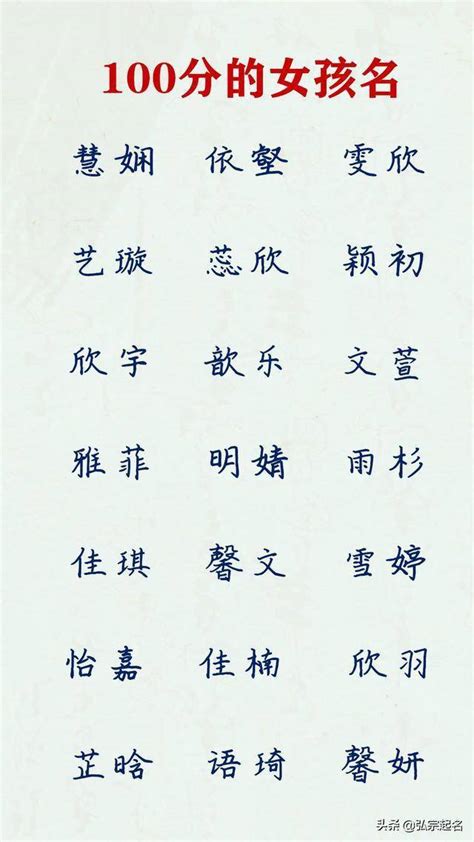 100分的女孩名
慧娴 依壑 雯欣
艺璇 蕊欣 颖初
欣宇 歆乐 文萱
雅菲 明婧 雨杉
佳琪 馨文 雪婷
怡嘉 佳楠 欣羽
芷晗 语琦 馨妍
头条 @弘宗起名